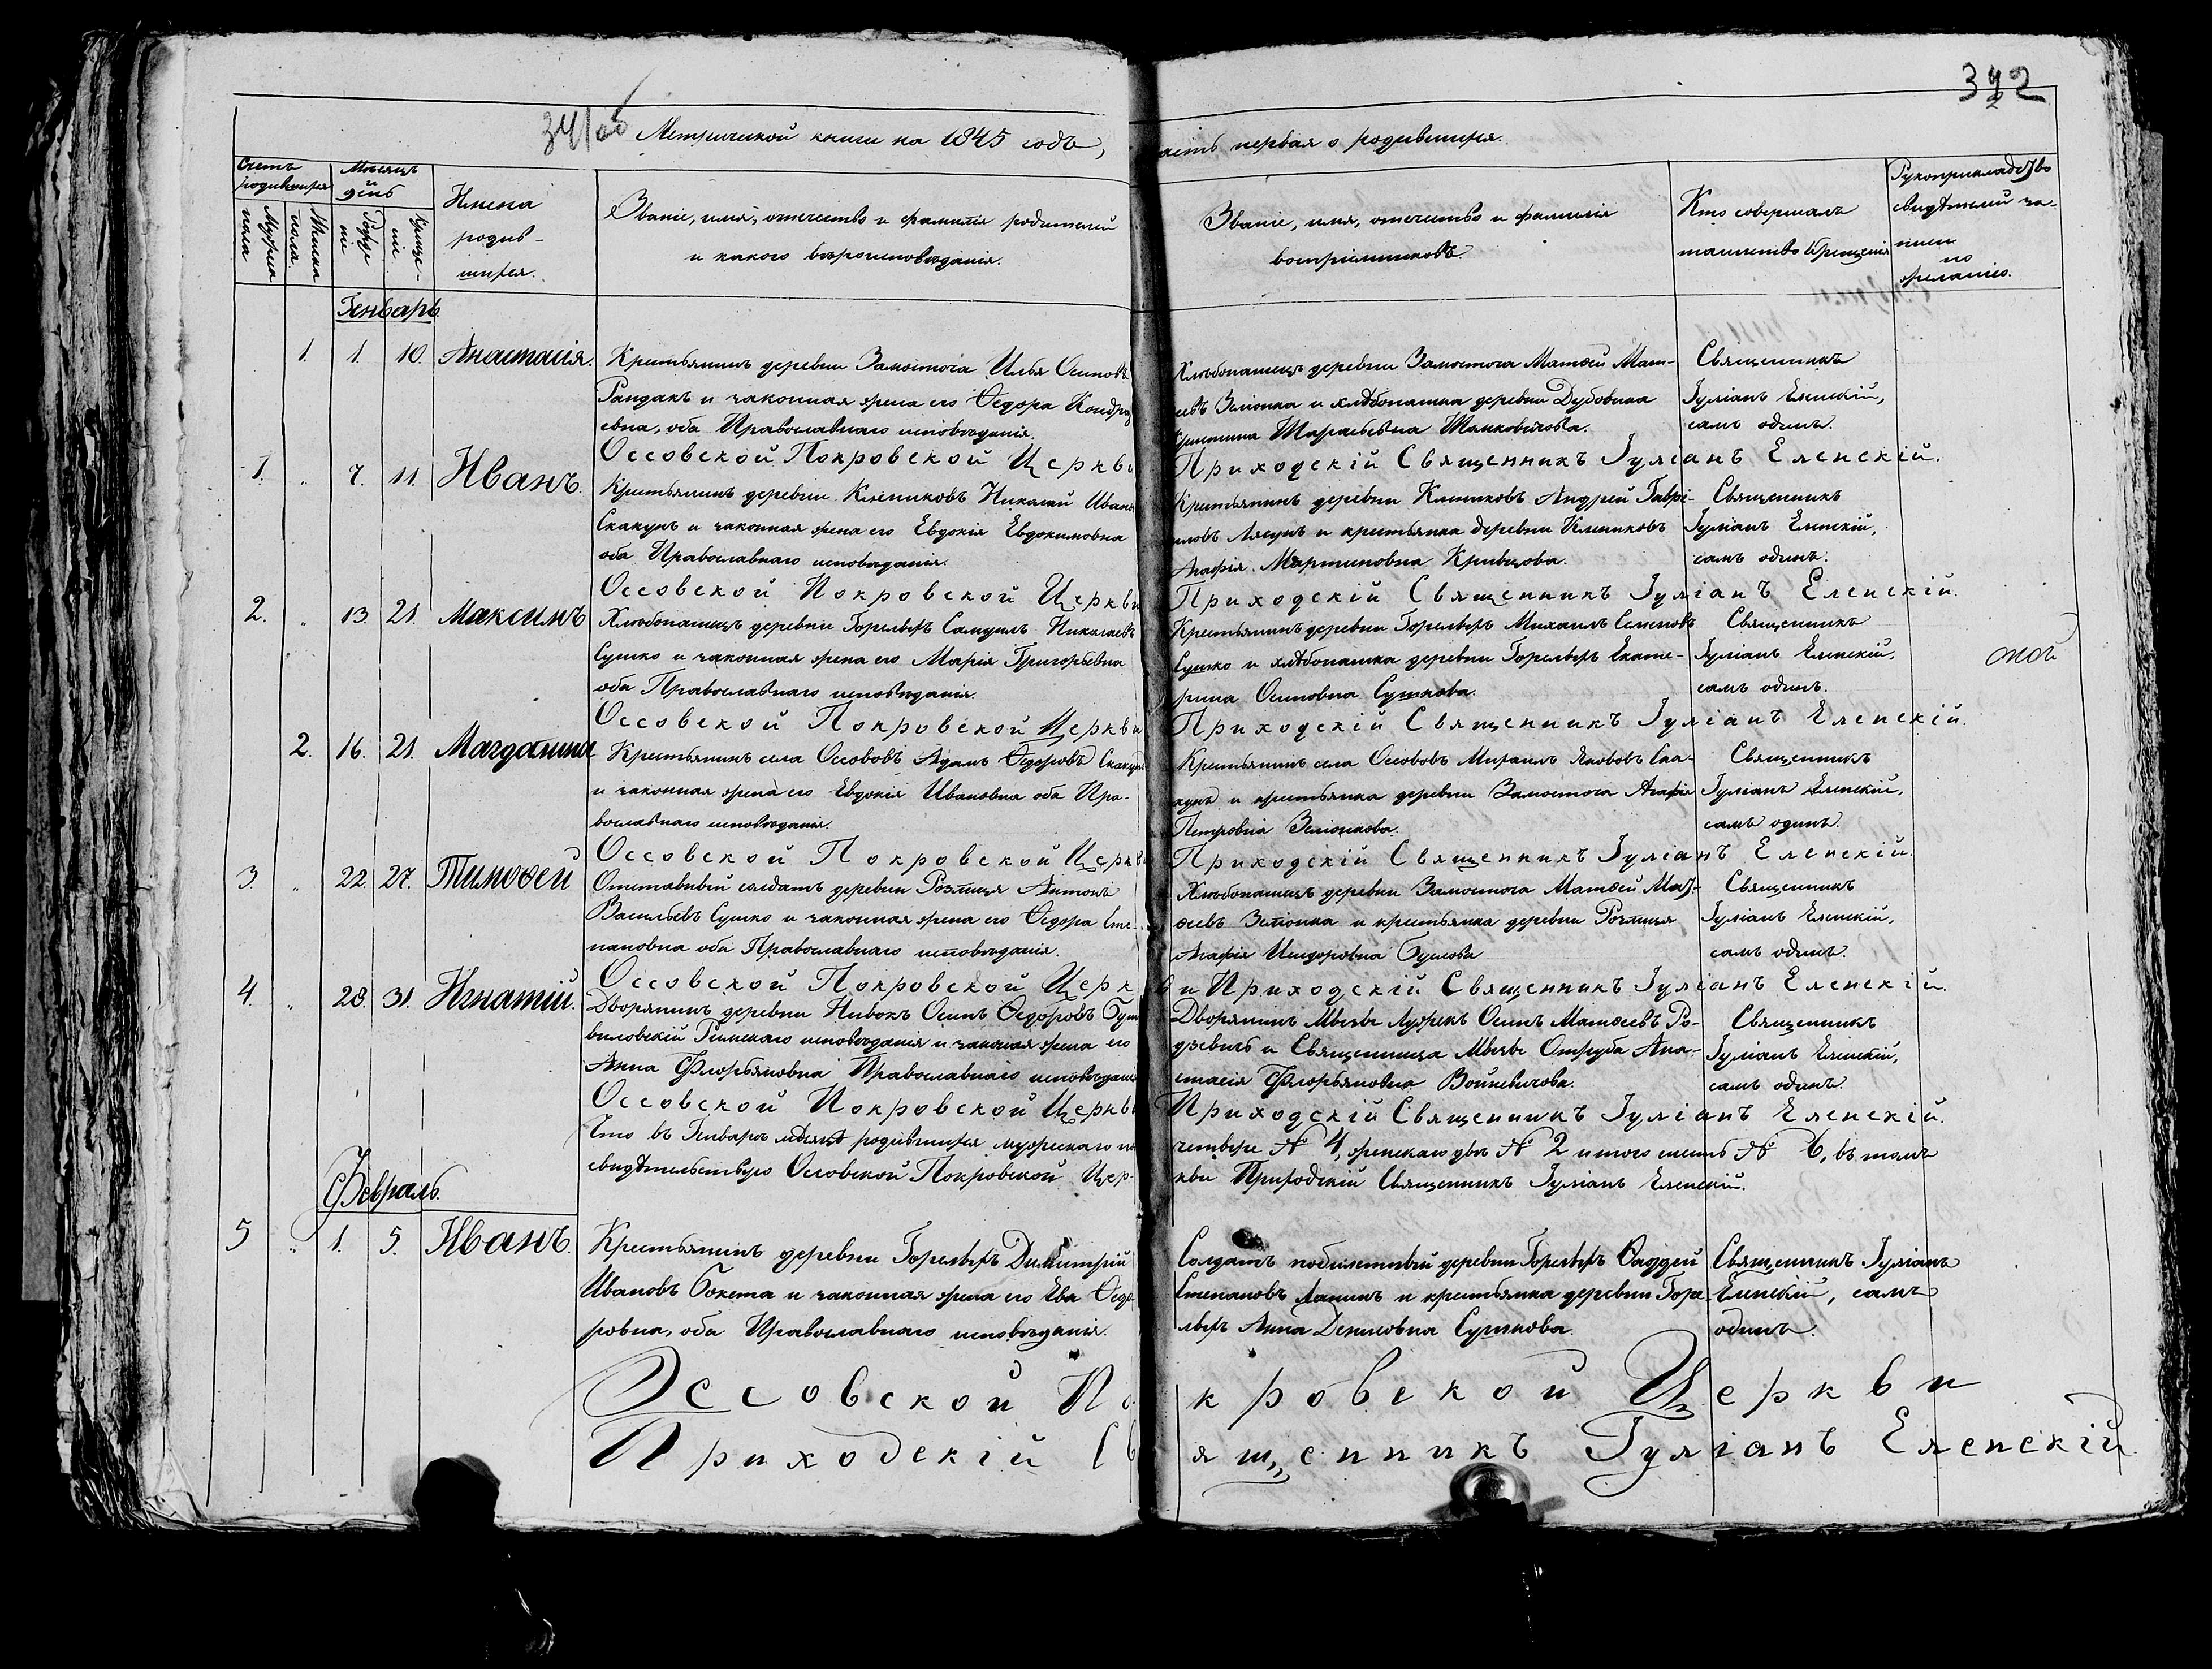 342
Метрической книги на 1845 годъ, часть первая о родившихся.
Счетъ родившихся
Мужеска пола
Женска пола.
Мѣсяцъ и день
Рожденіе
Крещеніе
Имена родив-
шихся.
Званіе, имя, отечество и фамилія родителей
и какого вѣроисповѣданія.
Званіе, имя, отечество и фамилія
воспріемниковъ.
Кто совершалъ
таинство крещенія
Рукоприкладство
свидѣтелей за-
писи
по
желанію.
Генварь
1. 1. 10. Анастасія.
Крестьянинъ деревни Замосточа Илья Осиповъ
Рандакъ и законная жена его Ѳедора Кондра
евна, оба Православнаго исповѣданія.
Хлѣбопашецъ деревни Замосточа Матѳей Мат-
еевъ Зелюнка и хлѣбопашка деревни Дубовика
Тарасьевна
Священникъ
Іуліанъ Еленскій,
самъ одинъ.
Оссовской Покровской Церкви Приходскій Священникъ Іуліанъ Еленскій.
1. " 7. 11. Иванъ.
Крестьянинъ деревни Клетиковъ Николай Ивановъ
Скакунъ и законная жена его Евдокія Евдокимовна
оба Православнаго исповѣданія.
Крестьянинъ деревни Андрей Гаврі-
иловъ и крестьянка деревни
Агафія Мартиновна Кривцова.
Священникъ
Іуліанъ Еленскій,
самъ одинъ.
Оссовской Покровской Церкви Приходскій Священникъ Іуліанъ Еленскій.
2. " 13. 21. Максимъ
Хлѣбопашецъ деревни Горелыхъ Самуилъ Николаевъ
Сушко и законная жена его Марія Григорьевна
оба Православнаго исповѣданія.
Крестьянинъ деревни Горелыхъ Михаилъ Семеновъ
Сушко и хлѣбопашка деревни Горелыхъ Екате-
рина Осиповна Сушкова.
Священникъ
Іуліанъ Еленскій,
самъ одинъ.
Оссовской Покровской Церкви Приходскій Священникъ Іуліанъ Еленскій.
2. 16. 21. Магдалина
Крестьянинъ села Оссововъ Адамъ Ѳедоровъ Скакунъ
и законная жена его Евдокія Ивановна оба Пра-
вославнаго исповѣданія.
Крестьянинъ села Оссововъ Михаилъ Яковъ Ска-
кунъ и крестьянка деревни Замосточа Агафія
Петровна Зелюнкова.
Священникъ
Іуліанъ Еленскій,
самъ одинъ.
Оссовской Покровской Церкви Приходскій Священникъ Іуліанъ Еленскій.
3. " 22. 27. Тимоѳей
Отставный солдатъ деревни Антонъ
Васильевъ Сушко и законная жена его Ѳедора Сте-
пановна оба Православнаго исповѣданія.
Хлѣбопашецъ деревни Замосточа Матѳей Мат-
ѳеевъ Зелюнка и крестьянка деревни
Агафія Исидоровна
Священникъ
Іуліанъ Еленскій,
самъ одинъ.
Оссовской Покровской Церкви Приходскій Священникъ Іуліанъ Еленскій.
4. " 28. 31. Игнатій.
Дворянинъ деревни Нивокъ Осипъ Ѳедоровъ
Римскаго исповѣданія и законная жена его
Анна Флорьяновна Православнаго исповѣданія
Дворянинъ Осипъ Матѳеевъ Ро-
дзевичъ и Священница Отруба Ана-
стасія Флорьяновна Войневичова.
Священникъ
Іуліанъ Еленскій,
самъ одинъ.
Оссовской Покровской Церкви Приходскій Священникъ Іуліанъ Еленскій.
Что въ Генварѣ мѣсяцѣ родившихся мужескаго по четыре № 4, женскаго двѣ № 2 итого шесть № 6, въ томъ
свидѣтельствую Оссовской Покровской Церкви Приходскій Священникъ Іуліанъ Еленскій.
Февраль.
5 " 1. 5. Иванъ.
Крестьянинъ деревни Горелыхъ Димитрій
Ивановъ Бокета и законная жена его Ева Ѳедо-
ровна, оба Православнаго исповѣданія.
Солдатъ побилетный деревни Горелыхъ Ѳаддей
Степановъ Лапинъ и крестьянка деревни Горе-
лыхъ Анна Денисовна Сушкова.
Священникъ Іуліанъ
Еленскій, самъ
одинъ.
Оссовской Покровской Церкви
Приходскій Священникъ Іуліанъ Еленскій